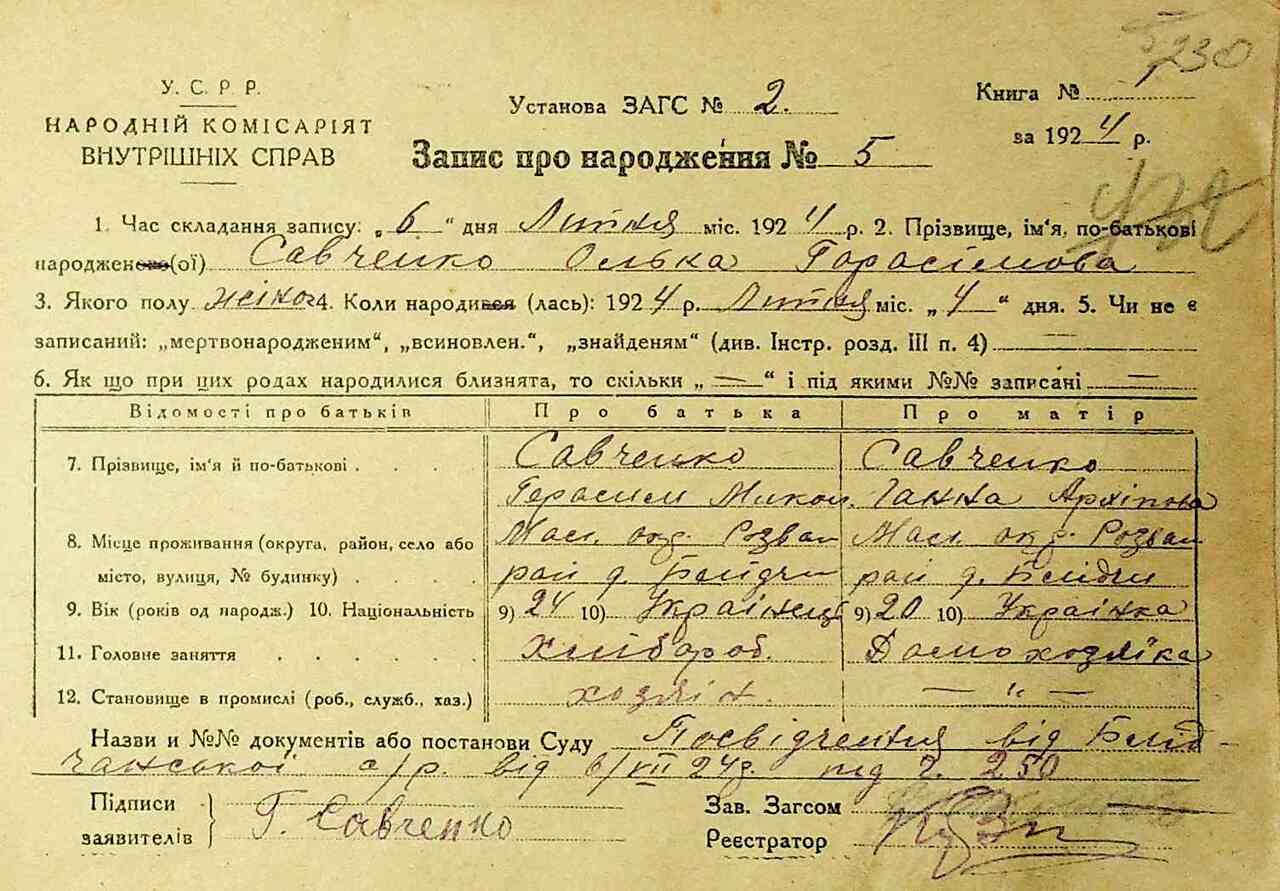 230
У. С. Р. Р.
НАРОДНІЙ КОМІСАРІЯТ
ВНУТРІШНІХ СПРАВ
Установа ЗАГС № 2.
Книга №
за 1924 р.
Запис про народження № 5
1. Час складання запису: „6“ дня Лютня міс. 1924 р. 2. Прізвище, ім'я, по-батькові
народженого(ої) Савченко Олька Герасімова
3. Якого полу жіноч 4. Коли народився (лась): 1924 р. Лютня міс. „4“ дня. 5. Чи не є
записаний: „мертвонародженим“, „всиновлен.“, „знайденям“ (див. Інстр. розд. III п. 4) —
6. Як що при цих родах народилися близнята, то скільки „—“ і під якими №№ записані —
Відомості про батьків Про батька Про матір
7. Прізвище, ім'я й по-батькові . . . . Савченко Савченко
Герасим Микол. Ганна Архіпова
8. Місце проживання (округа, район, село або Мал. окр. Розваж Мал. окр. Розваж
місто, вулиця, № будинку) . . . . рай д. рай д.
9. Вік (років од народж.) 10. Національність 9) 24 10) Українець 9) 20 10) Українка
11. Головне заняття . . . . . Хлібороб. Домохозяйка
12. Становище в промислі (роб., служб., хаз.) хозяїн. — „ —
Назви и №№ документів або постанови Суду Посвідчення від
чанської с/р. від 6/VII 24р. під ч. 250
Підписи
заявителів
Г. Савченко
Зав. Загсом
Реєстратор